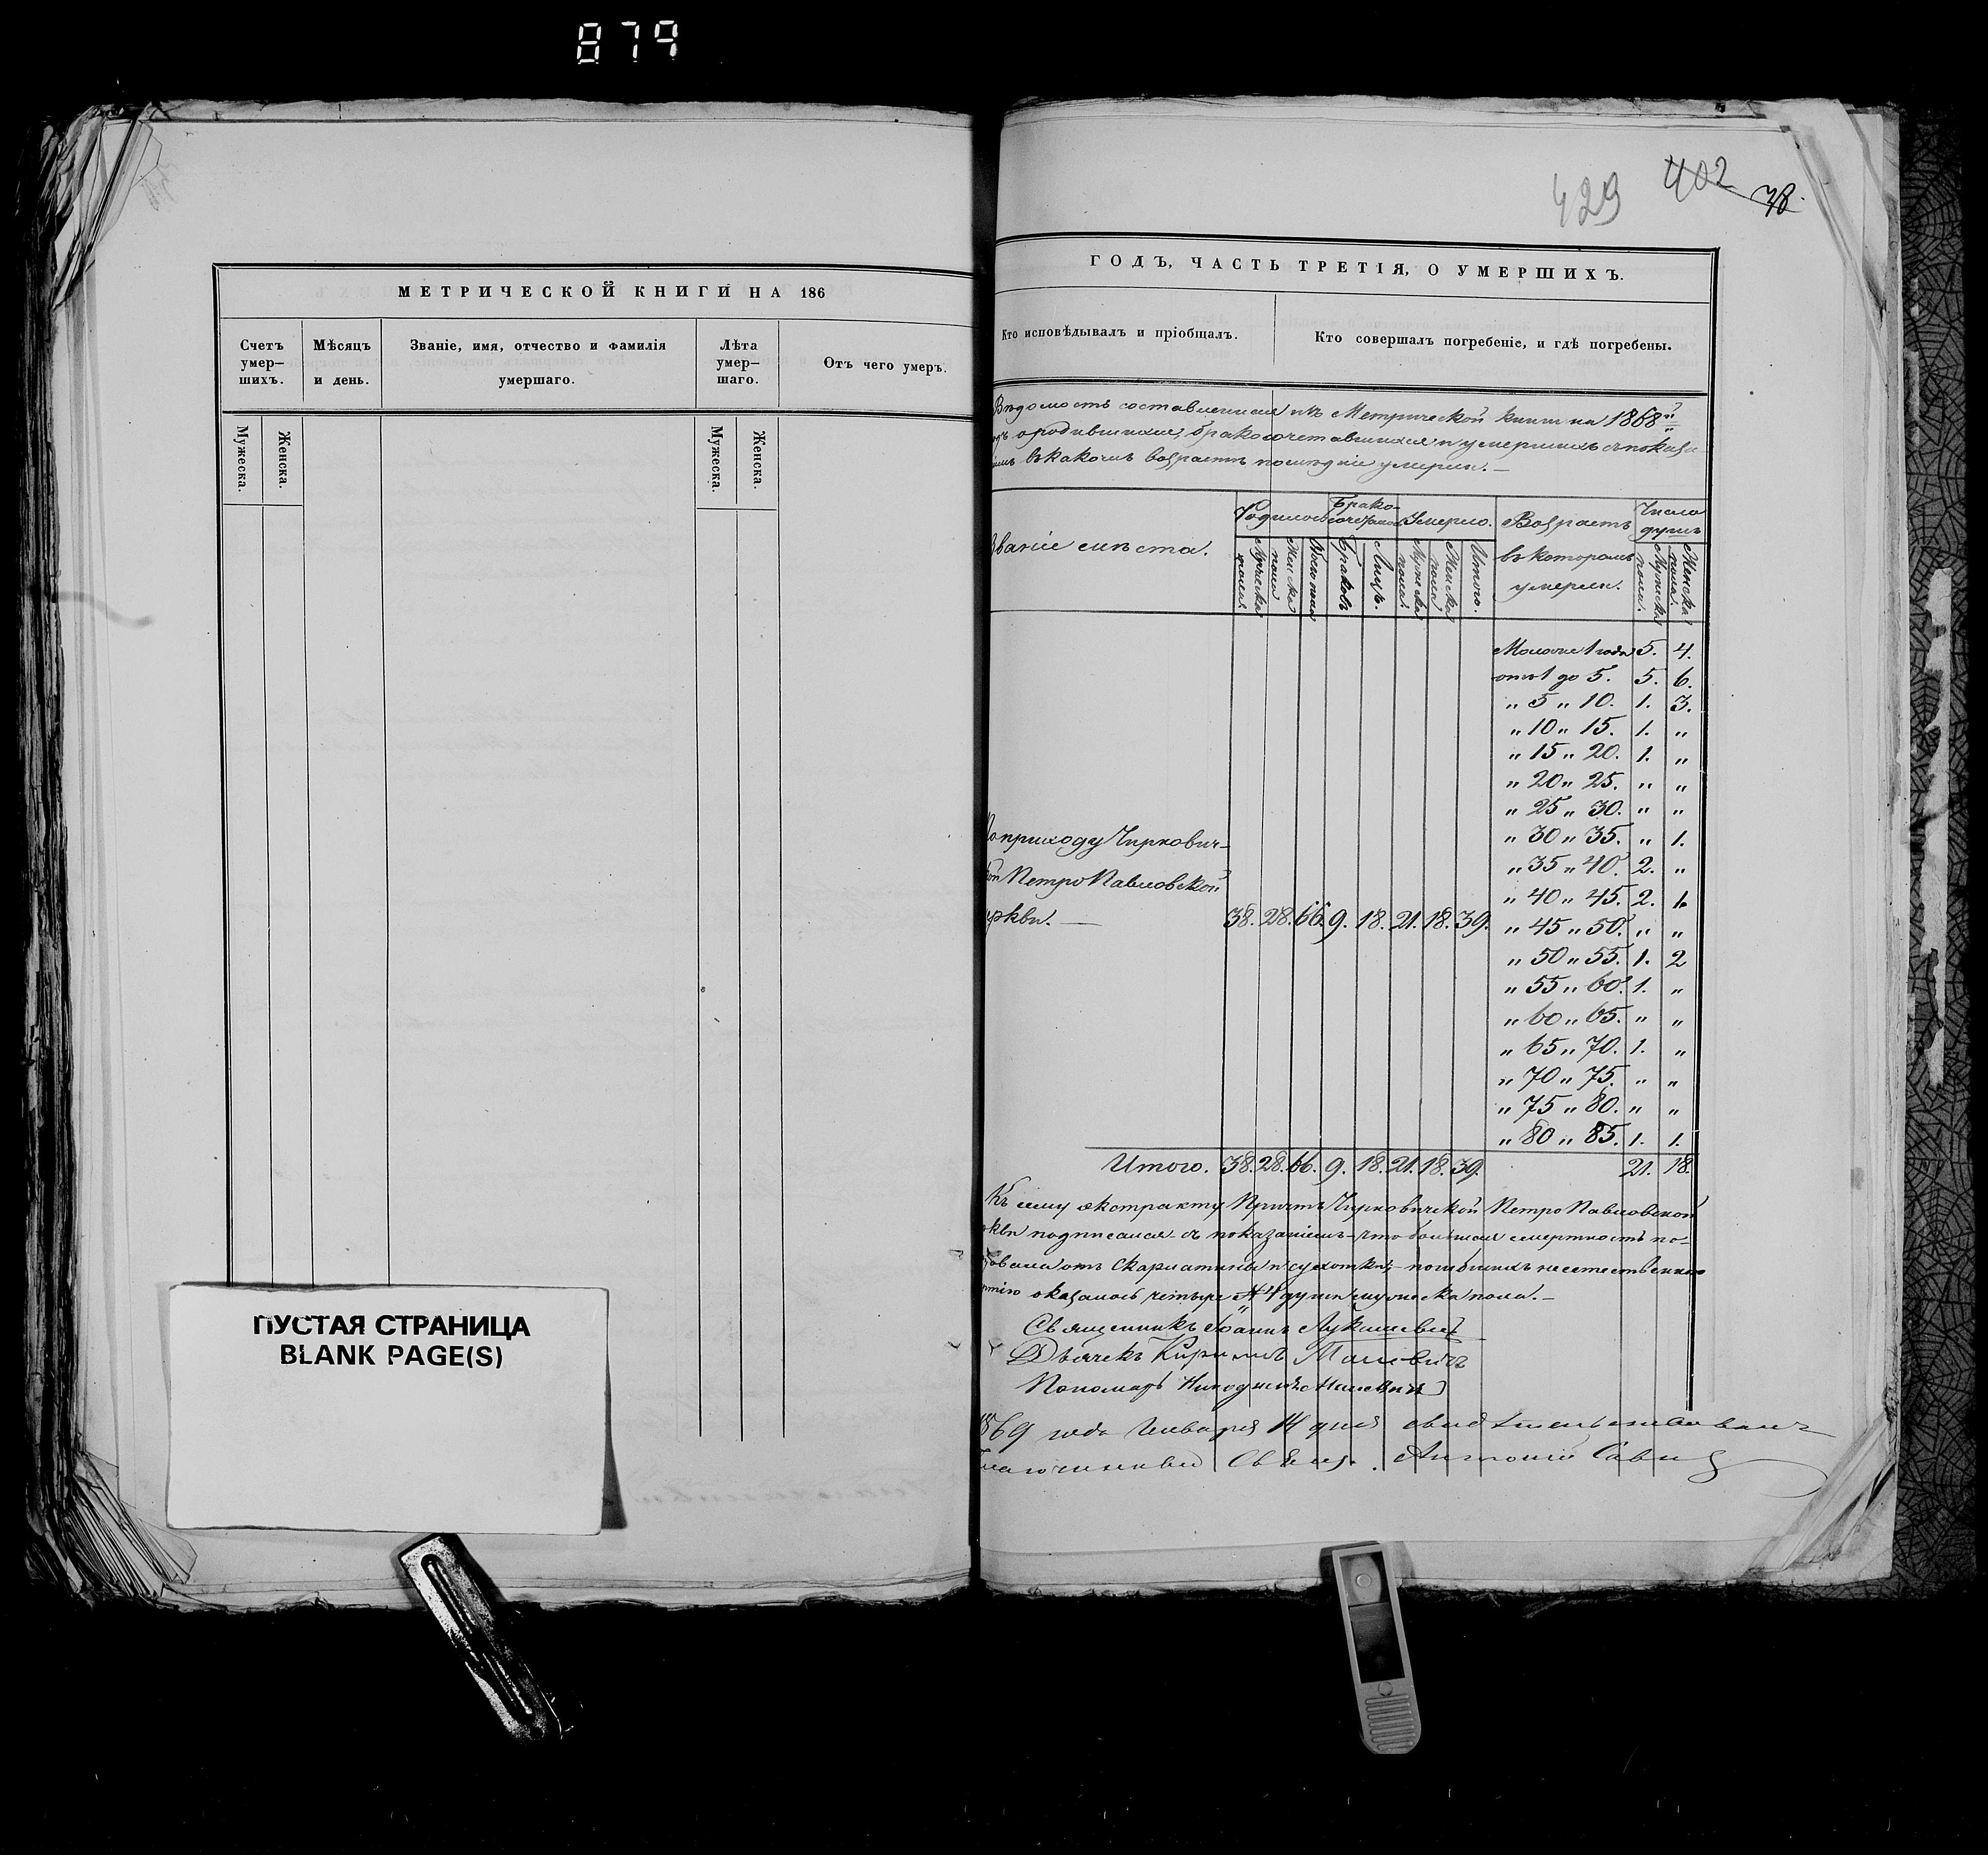 879
МЕТРИЧЕСКОЙ КНИГИ НА 186
Счетъ умер–шихъ.
Мѣсяцъ и день.
Званіе, имя, отчество и фамилія умершаго.
Лѣта умер–шаго.
Отъ чего умеръ.
Мужеска.
Женска.
Мужеска.
Женска.
ПУСТАЯ СТРАНИЦА
BLANK PAGE(S)
429 402 38.
ГОДЪ, ЧАСТЬ ТРЕТІЯ, О УМЕРШИХЪ.
Кто исповѣдывалъ и пріобщалъ.
Кто совершалъ погребеніе, и гдѣ погребены.
Вѣдомость составленная изъ Метрической книги на 1868й
о родившихся, бракосочетавшихся и умершихъ съ показа
въ какомъ возрастѣ послѣдніе умерли.—
званіе мѣста.
Родилось
Брако-сочетанія
Умерло.
Возрастъ въ которомъ умерли.
Число душъ
Мужеска пола.
Женска пола
Обоего пола
Браковъ
Лицъ.
Мужеска пола.
Женска пола
Итого.
Мужеска пола.
Женска пола.
Моложе 1 года 5. 4.
отъ 1 до 5. 5. 6.
„ 5 „ 10. 1. 3.
„ 10 „ 15. 1. „
„ 15 „ 20. 1. „
„ 20 „ 25. „ „
„ 25 „ 30. „ „
„ 30 „ 35. „ 1.
„ 35 „ 40. 2. „
„ 40 „ 45. 2. 1.
„ 45 „ 50. „ „
„ 50 „ 55. 1. 2
„ 55 „ 60. 1. „
„ 60 „ 65. „ „
„ 65 „ 70. 1. „
„ 70 „ 75. „ „
„ 75 „ 80. „ „
„ 80 „ 85. 1. 1.
По приходу Чиркович-
кой Петро Павловской
церкви.— 38. 28. 66. 9. 18. 21. 18. 39.
Итого. 38. 28. 66. 9. 18. 21. 18. 39. 21. 18.
Къ сему экстракту Причтъ Чирковичской Петро Павловской
подписался съ показаніемъ что большая смертность по-
отъ скарлатины и сухотки;— погибшихъ неестественною
оказалось четыре 4 души мужеска пола.—
Священникъ Іоаннъ Лукашевичъ
Дьячекъ Кириллъ Малевичъ
Пономарь Никодимъ
1869 года Января 14 дня свидѣтельствовалъ
Благочинный Свящ. Антоній Савич